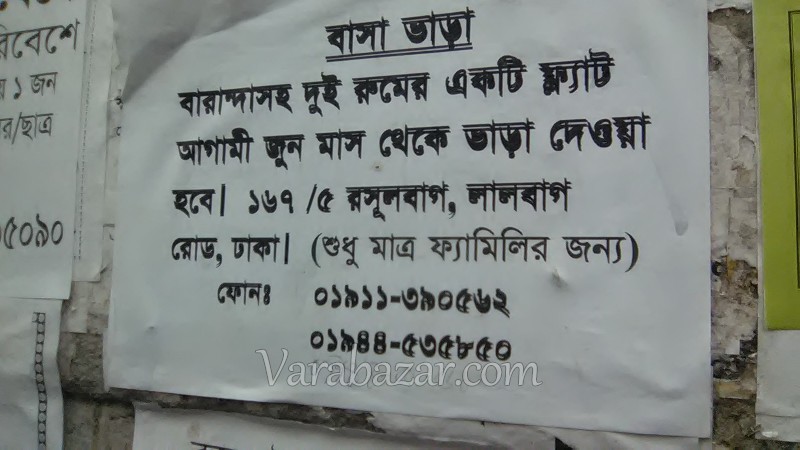 বাসা ভাড়া
বারান্দাসহ দুই রুমের একটি ফ্ল্যাট
আগামী জুন মাস থেকে ভাড়া দেওয়া
হবে। ১৬৭ /৫ রসূলবাগ, লালবাগ
রোড, ঢাকা। (শুধু মাত্র ফ্যামিলির জন্য)
ফোনঃ ০১৯১১-৩৯০৫৬২
০১৯৪৪-৫৩৫৮৫০
Varabazar.com
রিবেশে
১ জন
র/ছাত্র
৫০৯০